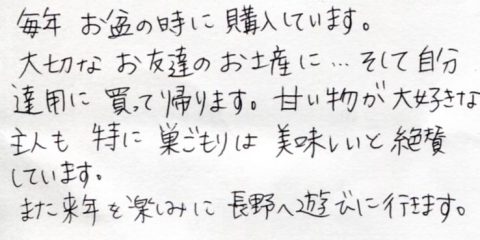 毎年 お盆の時に購入しています。
大切な お友達の お土産に… そして自分
達用に 買って帰ります。甘い物が大好きな
主人も 特に 巣ごもりは 美味しいと絶賛
しています。
また来年を楽しみに 長野へ遊びに行きます。